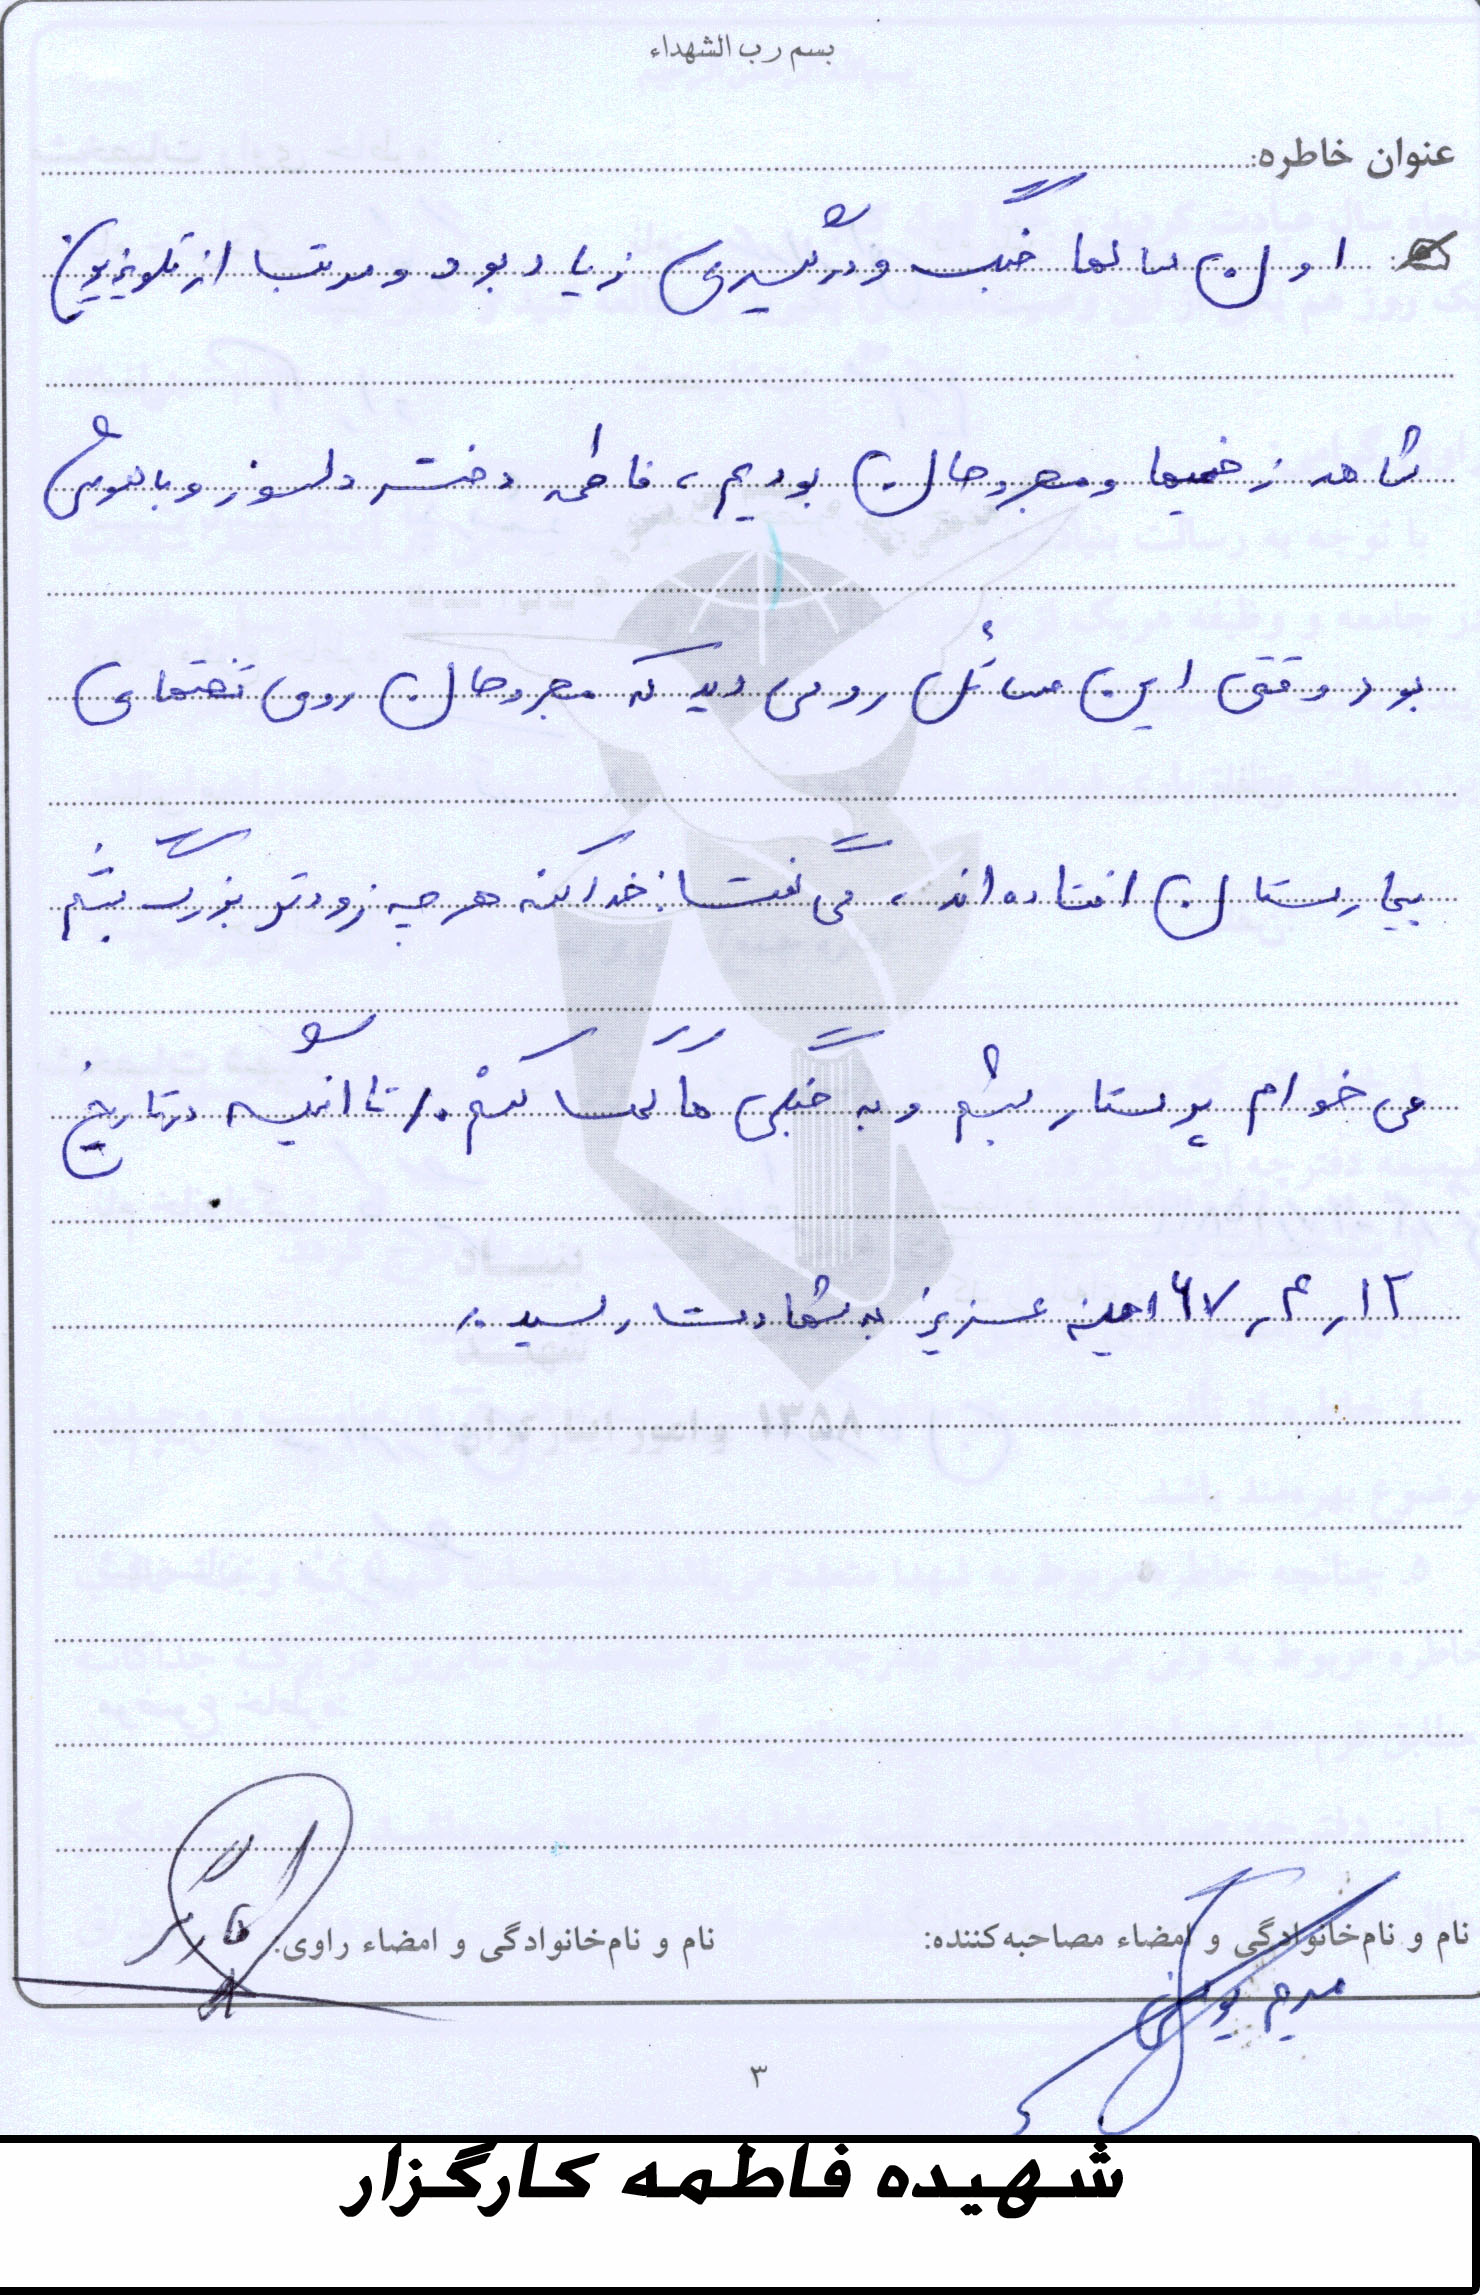 بسم رب الشهداء
عنوان خاطره:
اولن سالها جنگ و درگیری زیاد بود و مرتبا از تلویزیون
شاهد زخمیها و مجروحان بودیم، فاطمه دختر دلسوز و باهوشی
بود وقتی این مسائل رو می دید که مجروحان روی تختهای
بیمارستان افتاده اند، می گفت: خدا کنه هر چه زودتر بزرگ بشم
می خوام پرستار بشم و به جنگی ها کمک کنم. تا اینکه در تاریخ
۱۲ر۴ر۶۷ عزیز به شهادت رسید.
نام و نام‌خانوادگی و امضاء مصاحبه‌کننده:
نام و نام‌خانوادگی و امضاء راوی:
مریم
۳
شهیده فاطمه کارگزار